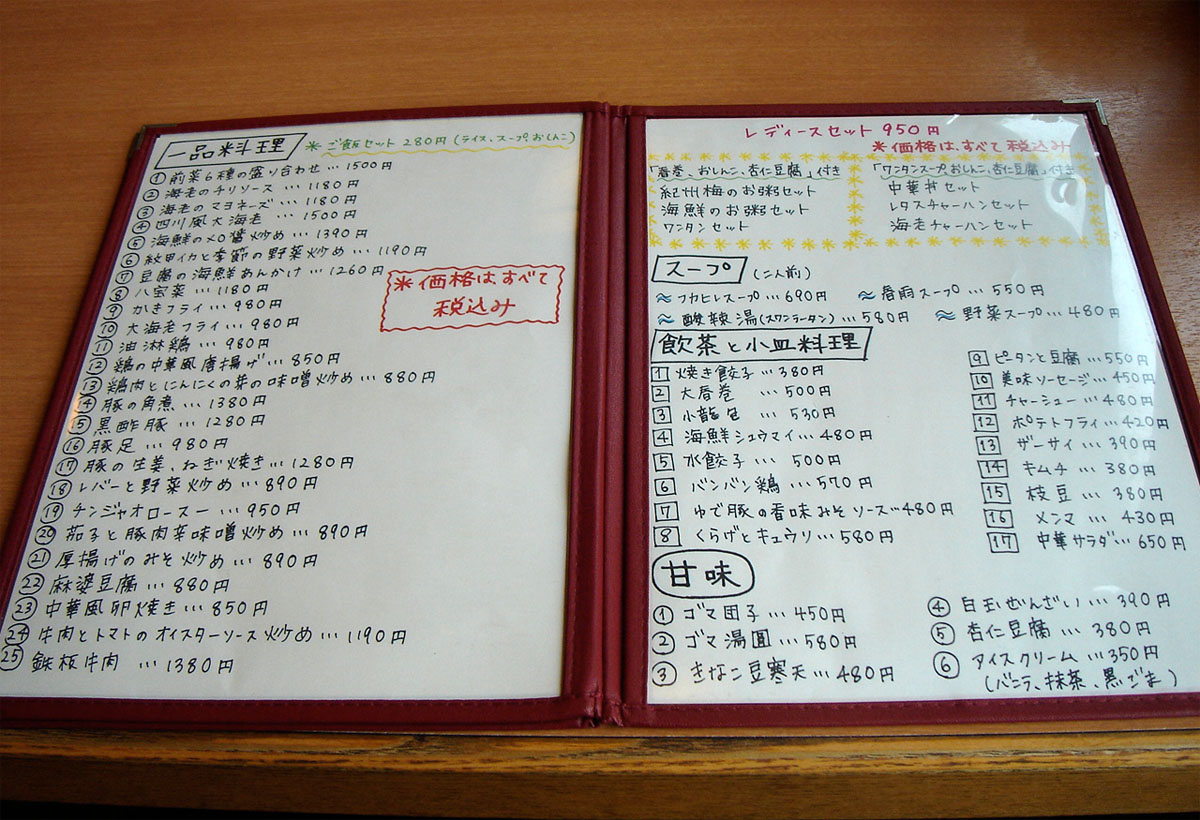 一品料理 ＊ご飯セット 280円 (ライス、スープ、おしんこ)
① 前菜6種の盛り合わせ … 1500円
② 海老のチリソース … 1180円
③ 海老のマヨネーズ … 1180円
④ 四川風大海老 … 1500円
⑤ 海鮮のXO醤炒め … 1390円
⑥ 紋甲イカと季節の野菜炒め … 1190円
⑦ 豆腐の海鮮あんかけ … 1260円
⑧ 八宝菜 … 1180円
⑨ かきフライ … 980円
⑩ 大海老フライ … 980円
⑪ 油淋鶏 … 980円
⑫ 鶏の中華風唐揚げ … 850円
⑬ 鶏肉とにんにくの芽の味噌炒め … 880円
⑭ 豚の角煮 … 1380円
⑮ 黒酢豚 … 1280円
⑯ 豚足 … 980円
⑰ 豚の生姜、ねぎ焼き … 1280円
⑱ レバーと野菜炒め … 890円
⑲ チンジャオロースー … 950円
⑳ 茄子と豚肉辛味噌炒め … 890円
㉑ 厚揚げのみそ炒め … 890円
㉒ 麻婆豆腐 … 880円
㉓ 中華風卵焼き … 850円
㉔ 牛肉とトマトのオイスターソース炒め … 1190円
㉕ 鉄板牛肉 … 1380円
＊価格はすべて
税込み
レディースセット 950円
＊価格は、すべて税込み
「春巻、おしんこ、杏仁豆腐」付き
紀州梅のお粥セット
海鮮のお粥セット
ワンタンセット
「ワンタンスープ、おしんこ、杏仁豆腐」付き
中華丼セット
レタスチャーハンセット
海老チャーハンセット
スープ (二人前)
≈ フカヒレスープ … 690円 ≈ 春雨スープ … 550円
≈ 酸辣湯(スワンラータン) … 580円 ≈ 野菜スープ … 480円
飲茶と小皿料理
1 焼き餃子 … 380円
2 大春巻 … 500円
3 小龍包 … 530円
4 海鮮シュウマイ … 480円
5 水餃子 … 500円
6 バンバン鶏 … 570円
7 ゆで豚の香味みそソース … 480円
8 くらげとキュウリ … 580円
9 ピタンと豆腐 … 550円
10 美味ソーセージ … 450円
11 チャーシュー … 480円
12 ポテトフライ … 420円
13 ザーサイ … 390円
14 キムチ … 380円
15 枝豆 … 380円
16 メンマ … 430円
17 中華サラダ … 650円
甘味
① ゴマ団子 … 450円
② ゴマ湯圓 … 580円
③ きなこ豆寒天 … 480円
④ 白玉ぜんざい … 390円
⑤ 杏仁豆腐 … 380円
⑥ アイスクリーム … 350円
(バニラ、抹茶、黒ごま)